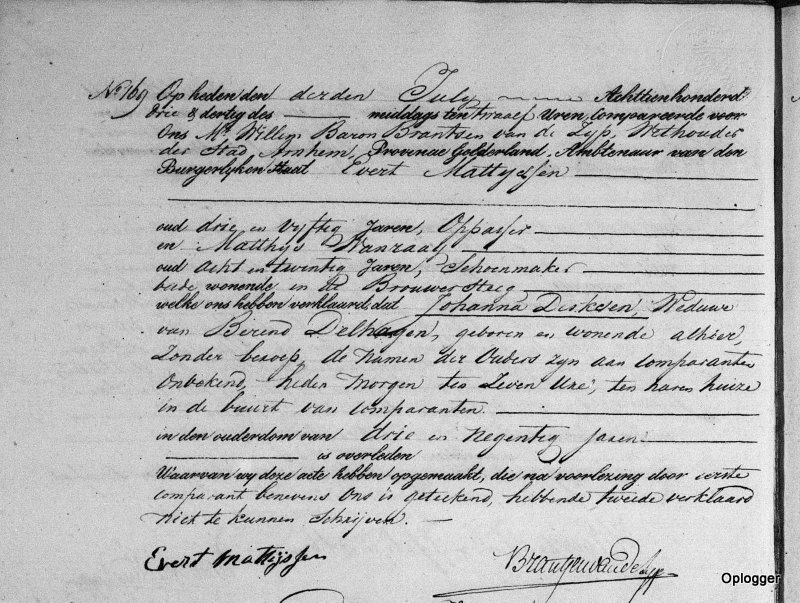 No 169 Op heden den derden July Achttienhonderd
drie & dertig des middags ten twaalf Uren, Compareerde voor
Ons Mr Willem Baron Brantsen van de Zyp, Wethouder
der Stad Arnhem, Provincie Gelderland, Ambtenaar van den
Burgerlyken Staat Evert Mattyssen
oud drie en vyftig Jaren, Oppasser
en Matthys Wanraay
oud acht en twintig Jaren, Schoenmaker
beide wonende in de Brouwer Steeg
welke ons hebben verklaard, dat Johanna Derksen, Weduwe
van Berend Delhagen, geboren en wonende alhier,
Zonder beroep, de Namen der Ouders zyn aan Comparanten
Onbekend, heden Morgen ten Zeven Ure, ten haren huize
in de buurt van Comparanten
in den ouderdom van drie en Negentig Jaren
is overleden
Waarvan wy deze acte hebben opgemaakt, die na voorlezing door eerste
Comparant benevens Ons is geteekend, hebbende tweede verklaard
niet te kunnen Schrijven.
Evert Mattijssen
Brantsen van de Zyp
Oplogger